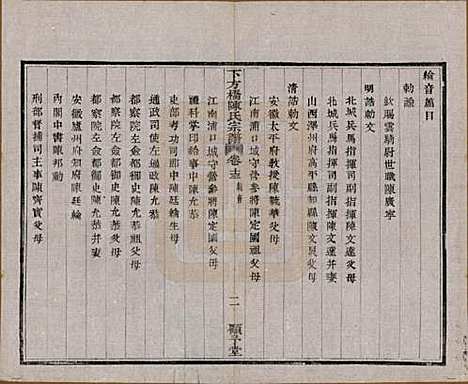 綸音篇目
勅諭
欽賜雲騎尉世職陳廣寧
明誥勅文
北城兵馬指揮司副指揮陳文
北城兵馬指揮司副指揮陳文 并妻
山西澤州府高平縣知縣陳文 父母
清誥勅文
安徽太平府教授陳
江南浦口城守營參將陳定國祖父母
下方橋陳氏宗譜 卷 二 堂
江南浦口城守營參將陳定國父母
科掌印給事中陳允恭
吏部考功司郎中陳廷綸生母
通政司使左通政陳允恭
都察院左僉都御史陳允恭祖父母
都察院左僉都御史陳允恭父母
都察院左僉都御史陳允恭并妻
安徽廬州府知府陳廷綸
內閣中書陳邦勳
刑部督捕司主事陳齊實父母